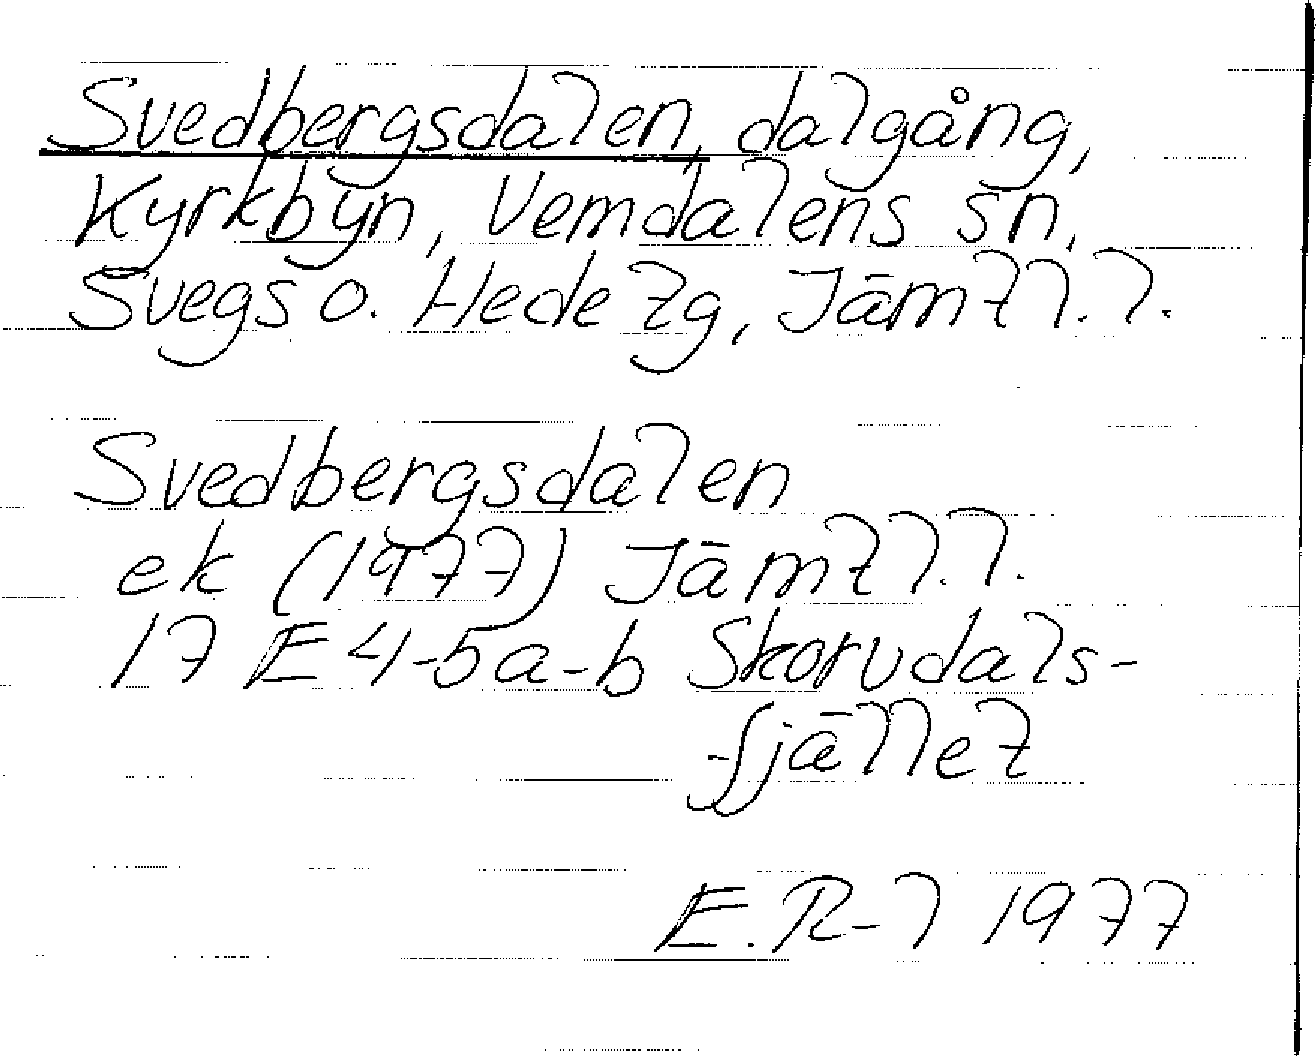 Svedbergsdalen, dalgång,
Kyrkbyn, Vemdalens sn,
Svegs o. Hede tg, Jämtl. l.
Svedbergsdalen
ek (1977) Jämtl. l.
17 E 4-5a-b Skorvdals-
-fjället
E. R-l 1977